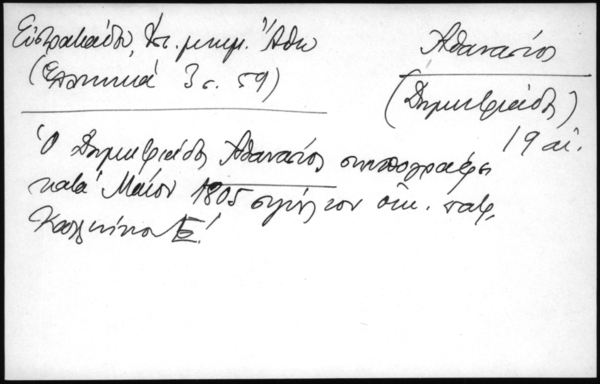 Εὐστρατιάδου, Ἱστ. μνημ. Ἄθω
(Ἑλληνικά 3 σ. 59)
Ἀθανάσιος
(Δημητριάδης)
19 αἰ.
Ὁ Δημητριάδης Ἀθανάσιος συνυπογράφει
κατά Μάϊον 1805 τοῦ οἰκ. πατρ.
Καλλινίκου Ε΄